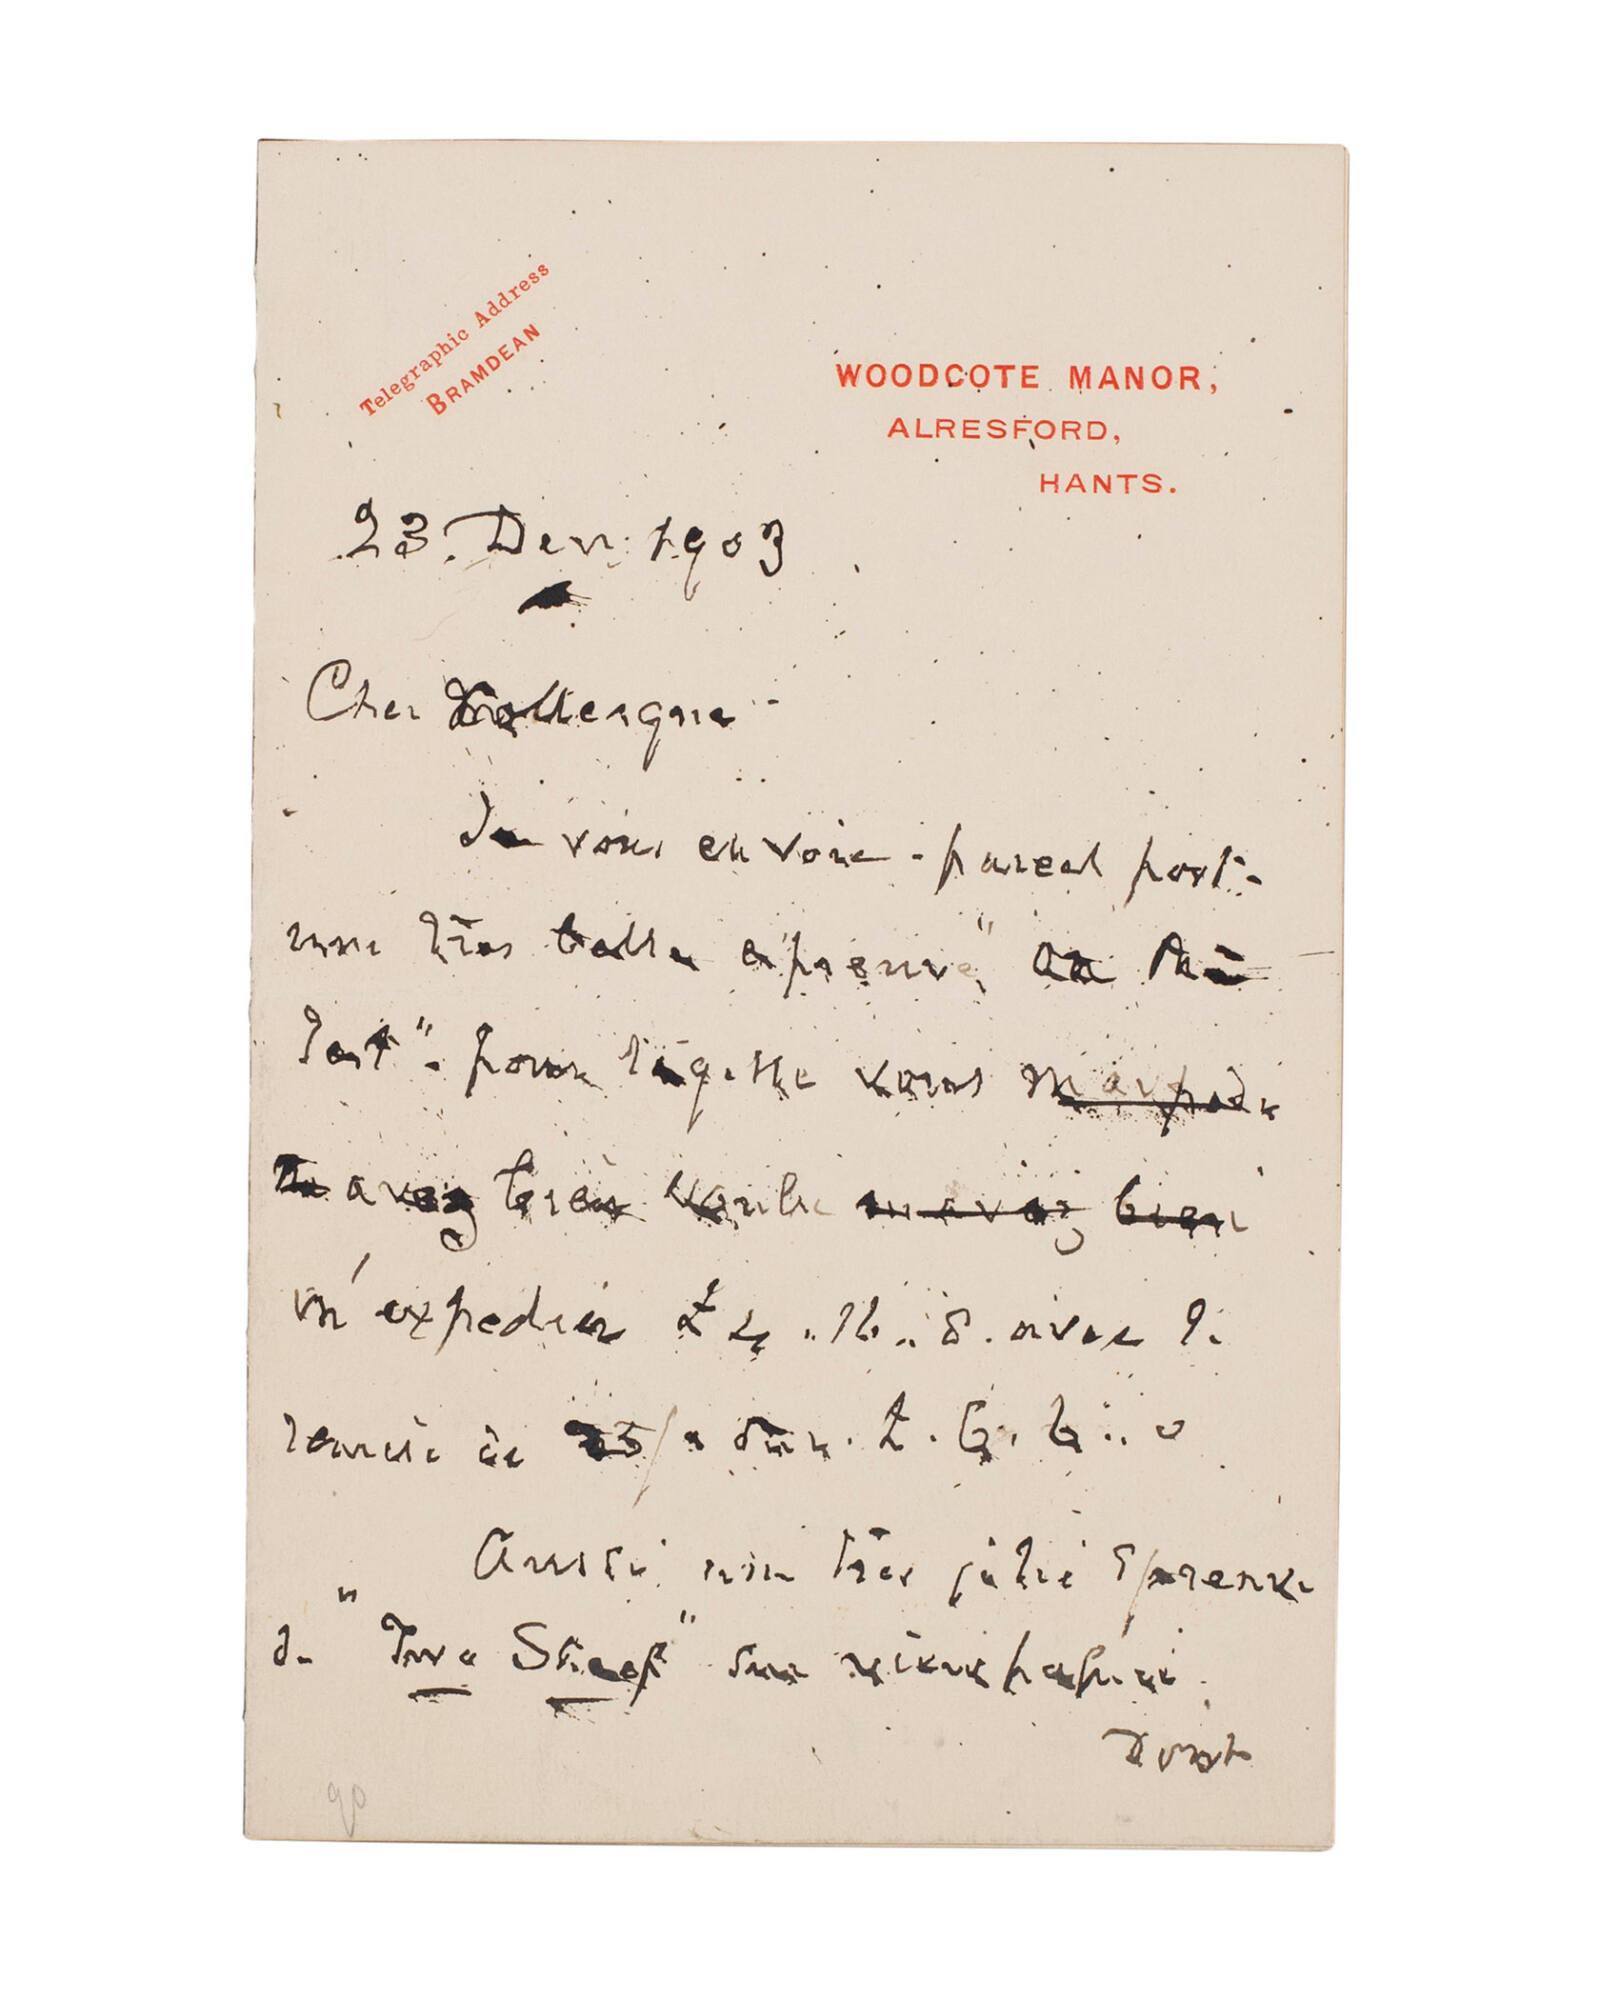 Telegraphic Address
BRAMDEAN
WOODCOTE MANOR,
ALRESFORD,
HANTS.
23. Decr. 1903
Cher Colleague -
Je vous envoie - parcel post -
une très belle epreuve "
" - pour laquelle vous
avez bien voulu m'avez bien
m'expedier £ 4 .. 16 .. 8. avec
remise de 25/ sur. £. 6. 6 .. 0
Aussi une très jolie epreuve
de " Sheep " sur vieux papier.
90